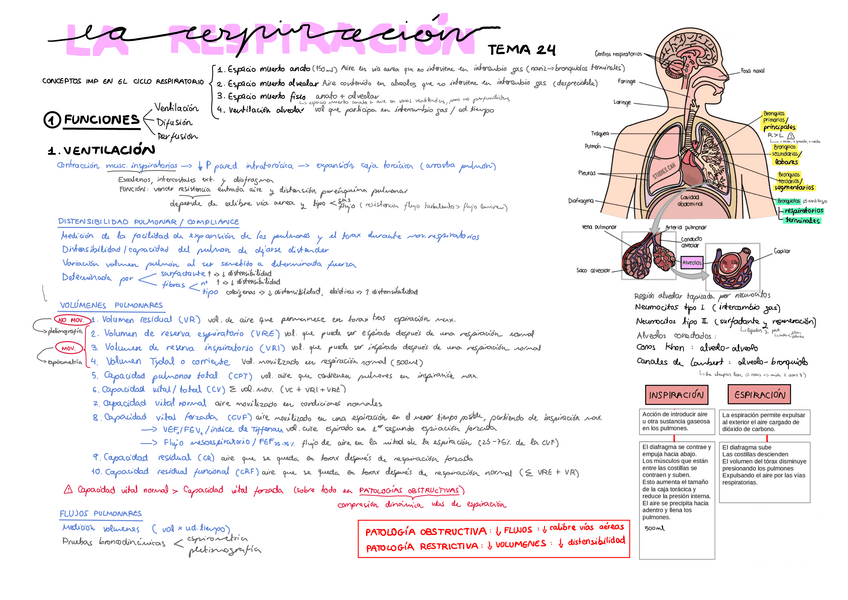 la respiración
LA RESPIRACIÓN
TEMA 24
CONCEPTOS IMP EN EL CICLO RESPIRATORIO
1. Espacio muerto anato (150ml) Aire en vía aerea que no interviene en intercambio gas (nariz → bronquiolos terminales)
2. Espacio muerto alveolar Aire contenido en alveolos que no interviene en intercambio gas (despreciable)
3. Espacio muerto fisio anato + alveolar
4. Ventilación alveolar vol que participa en intercambio gas / ud tiempo
1 FUNCIONES
Ventilación
Difusión
Perfusión
1. VENTILACIÓN
Contracción musc. inspiratorios → ↓ P pared intratorácica → expansión caja torácica (arrastra pulmón)
Escalenos, intercostales ext. y diafragma
FUNCIÓN: vencer resistencia entrada aire y distensión parénquima pulmonar
depende de calibre vía aerea y tipo < gas flujo (resistencia flujo turbulento > flujo laminar)
DISTENSIBILIDAD PULMONAR / COMPLIANCE
Medición de la facilidad de expansión de los pulmones y el torax durante mov respiratorios
Distensibilidad / capacidad del pulmón de dejarse distender
Variación volumen pulmón al ser sometido a determinada fuerza
Determinada por < surfactante ↑ => ↓ distensibilidad
fibras < nº ↑ => ↓ distensibilidad
tipo colágenas => ↓ distensibilidad, elásticas => ↑ distensibilidad
VOLÚMENES PULMONARES
NO MOV.
pletismografía
MOV.
espirometría
1. Volumen residual (VR) vol. de aire que permanece en torax tras espiración max.
2. Volumen de reserva espiratorio (VRE) vol. que puede ser espirado después de una respiración normal
3. Volumen de reserva inspiratorio (VRI) vol. que puede ser inspirado después de una respiración normal
4. Volumen Tydal o corriente vol movilizado en respiración normal (500ml)
5. Capacidad pulmonar total (CPT) vol. aire que contienen pulmones en inspiración max.
6. Capacidad vital / total (CV) Σ vol mov. (VC + VRI + VRE)
7. Capacidad vital normal aire movilizado en condiciones normales
8. Capacidad vital forzada (CVF) aire movilizado en una espiración en el menor tiempo posible, partiendo de inspiración max
→ VEF1/FEV1 / indice de Tiffenau vol. aire espirado en 1er segundo espiración forzada
→ Flujo mesoespiratorio / FEF 25-75% flujo de aire en la mitad de la espiración (25-75% de la CVF)
9. Capacidad residual (CR) aire que se queda en torax después de respiración forzada
10. Capacidad residual funcional (CRF) aire que se queda en torax después de respiración normal (Σ VRE + VR)
⚠ Capacidad vital normal > Capacidad vital forzada (sobre todo en PATOLOGÍAS OBSTRUCTIVAS)
compresión dinámica vías de espiración
FLUJOS PULMONARES
Medición volúmenes (vol x ud. tiempo)
Pruebas broncodinámicas < espirometría
pletismografía
PATOLOGÍA OBSTRUCTIVA: ↓ FLUJOS: ↓ calibre vías aéreas
PATOLOGÍA RESTRICTIVA: ↓ VOLUMENES: ↓ distensibilidad
Centros respiratorios
Fosa nasal
Faringe
Laringe
Tráquea
Pulmón
Pleuras
Diafragma
Cavidad abdominal
Bronquios primarios / principales
R > L ⚠
Bronquios secundarios / lobares
Bronquios terciarios / segmentarios
Bronquiolos
respiratorios
terminales
Vena pulmonar
Arteria pulmonar
Conducto alveolar
Saco alveolar
Alveolos
Capilar
Región alveolar tapizada por neumocitos
Neumocitos tipo I (intercambio gas)
Neumocitos tipo II (surfactante y regeneración)
Alveolos conectados:
Poros Khon: alveolo-alveolo
Canales de Lambert: alveolo-bronquiolo
INSPIRACIÓN
Acción de introducir aire
u otra sustancia gaseosa
en los pulmones.
El diafragma se contrae y
empuja hacia abajo.
Los músculos que están
entre las costillas se
contraen y suben.
Esto aumenta el tamaño
de la caja torácica y
reduce la presión interna.
El aire se precipita hacia
adentro y llena los
pulmones.
500ml
ESPIRACIÓN
La espiración permite expulsar
al exterior el aire cargado de
dióxido de carbono.
El diafragma sube
Las costillas descienden
El volumen del tórax disminuye
presionando los pulmones
Expulsando el aire por las vías
respiratorias.